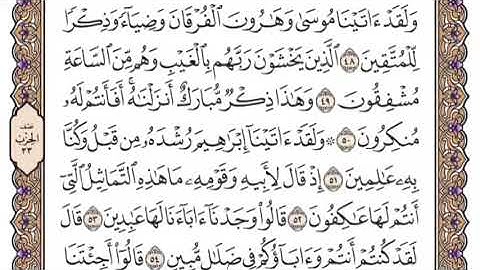 وَلَقَدْ ءَاتَيْنَا مُوسَىٰ وَهَٰرُونَ ٱلْفُرْقَانَ وَضِيَآءً وَذِكْرًا
لِّلْمُتَّقِينَ ٤٨ ٱلَّذِينَ يَخْشَوْنَ رَبَّهُم بِٱلْغَيْبِ وَهُم مِّنَ ٱلسَّاعَةِ
مُشْفِقُونَ ٤٩ وَهَٰذَا ذِكْرٌ مُّبَارَكٌ أَنزَلْنَٰهُ ۚ أَفَأَنتُمْ لَهُۥ
مُنكِرُونَ ٥٠ ۞ وَلَقَدْ ءَاتَيْنَآ إِبْرَٰهِيمَ رُشْدَهُۥ مِن قَبْلُ وَكُنَّا
بِهِۦ عَٰلِمِينَ ٥١ إِذْ قَالَ لِأَبِيهِ وَقَوْمِهِۦ مَا هَٰذِهِ ٱلتَّمَاثِيلُ ٱلَّتِىٓ
أَنتُمْ لَهَا عَٰكِفُونَ ٥٢ قَالُوا۟ وَجَدْنَآ ءَابَآءَنَا لَهَا عَٰبِدِينَ ٥٣ قَالَ
لَقَدْ كُنتُمْ أَنتُمْ وَءَابَآؤُكُمْ فِى ضَلَٰلٍ مُّبِينٍ ٥٤ قَالُوٓا۟ أَجِئْتَنَا
نصف
الحزب
٣٣